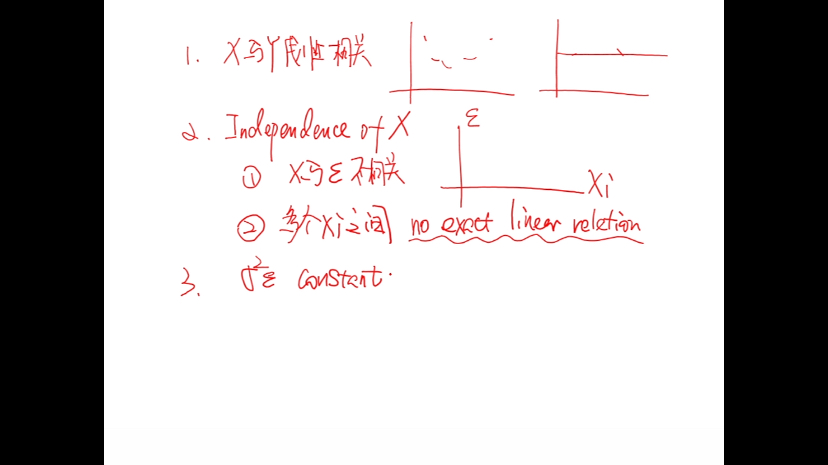 1. X与Y线性相关
2. Independence of X
ε
① X与ε不相关
Xi
② 多个Xi之间 no exact linear relation
3. σ²ε constant.